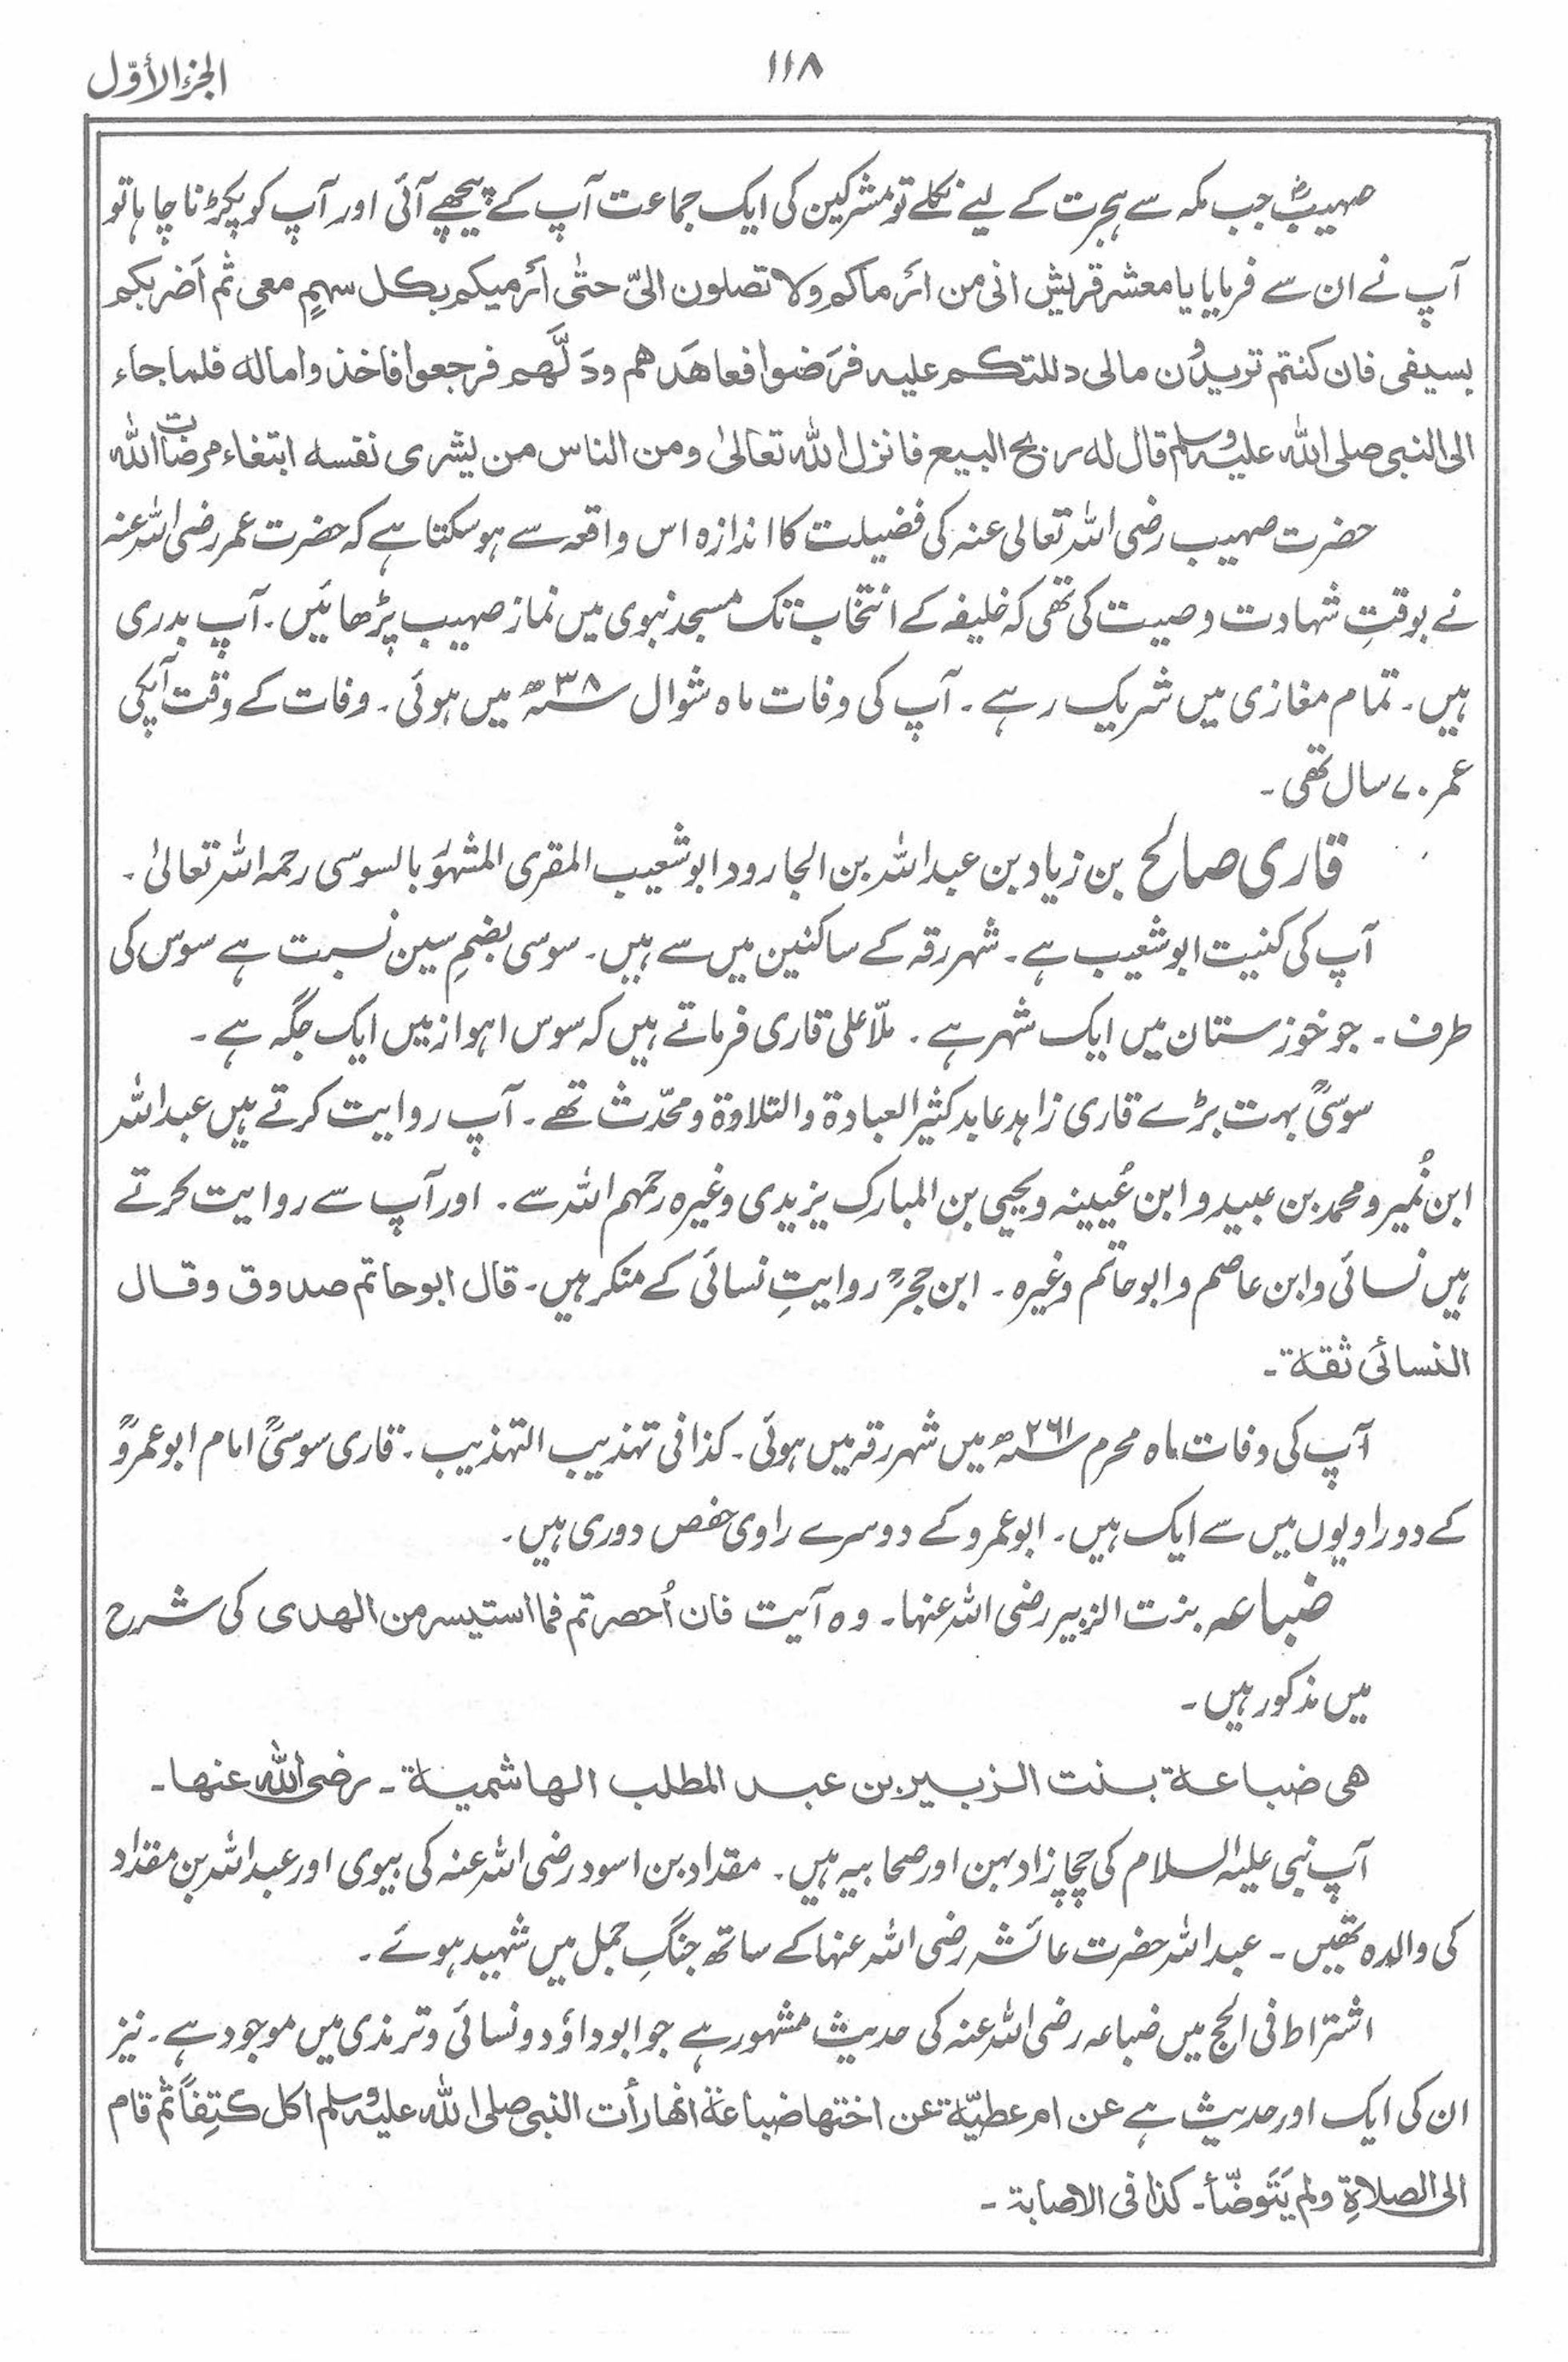 الجزء الأوّل
١١٨
صہیبؓ جب مکہ سے ہجرت کے لیے نکلے تو مشرکین کی ایک جماعت آپ کے پیچھے آئی اور آپ کو پکڑنا چاہا تو
آپ نے ان سے فرمایا یا معشر قریش انی من ارَماکم ولا تصلون الیّ حتیٰ اَرمیکم بکل سہمٍ معی ثم اَضربکم
بسیفی فان کنتم تریدُون مالی دللتکم علیہ فرَضوا فعاهَدهم ودَلَّهم فرجعوا فاخذوا مالہ فلما جاء
الی النبی صلی اللہ علیہ وسلم قال لہ ربح البیع فانزل اللہ تعالیٰ ومن الناس من یشری نفسہ ابتغاء مرضات اللہ
حضرت صہیب رضی اللہ تعالی عنہ کی فضیلت کا اندازہ اس واقعہ سے ہوسکتا ہے کہ حضرت عمر رضی اللہ عنہ
نے بوقتِ شہادت وصیت کی تھی کہ خلیفہ کے انتخاب تک مسجد نبوی میں نماز صہیب پڑھائیں۔ آپ بدری
ہیں۔ تمام مغازی میں شریک رہے۔ آپ کی وفات ماہ شوال ۳۸ھ میں ہوئی۔ وفات کے وقت آپکی
عمر ۷۰ سال تھی۔
قاری صالح بن زیاد بن عبداللہ بن الجارود ابوشعیب المقری المشہوَر بالسوسی رحمہ اللہ تعالیٰ۔
آپ کی کنیت ابوشعیب ہے۔ شہر رقہ کے ساکنین میں سے ہیں۔ سوسی بضمِ سین نسبت ہے سوس کی
طرف۔ جو خوزستان میں ایک شہر ہے۔ ملّا علی قاری فرماتے ہیں کہ سوس اہواز میں ایک جگہ ہے۔
سوسیؒ بہت بڑے قاری زاہد عابد کثیر العبادۃ والتلاوۃ ومحدّث تھے۔ آپ روایت کرتے ہیں عبداللہ
ابن نُمیر ومحمد بن عبید وابن عُیینہ ویحیی بن المبارک یزیدی وغیرہ رحمہم اللہ سے۔ اور آپ سے روایت کرتے
ہیں نسائی وابن عاصم وابوحاتم وغیرہ۔ ابن حجرؒ روایتِ نسائی کے منکر ہیں۔ قال ابوحاتم صدوق وقال
النسائی ثقۃ۔
آپ کی وفات ماہ محرم ۲۶۱ھ میں شہر رقہ میں ہوئی۔ کذا فی تہذیب التہذیب۔ قاری سوسیؒ امام ابوعمروؒ
کے دو راویوں میں سے ایک ہیں۔ ابوعمرو کے دوسرے راوی حفص دوری ہیں۔
ضباعہ بنت الزبیر رضی اللہ عنہا۔ وہ آیت فان اُحصرتم فما استیسر من الھدی کی شرح
میں مذکور ہیں۔
ھی ضباعۃ بنت الزبیر بن عبد المطلب الھاشمیۃ۔ رضی اللہ عنھا۔
آپ نبی علیہ السلام کی چچازاد بہن اور صحابیہ ہیں۔ مقداد بن اسود رضی اللہ عنہ کی بیوی اور عبداللہ بن مقداد
کی والدہ تھیں۔ عبداللہ حضرت عائشہ رضی اللہ عنہا کے ساتھ جنگِ جمل میں شہید ہوئے۔
اشتراط فی الحج میں ضباعہ رضی اللہ عنہ کی حدیث مشہور ہے جو ابوداؤد ونسائی وترمذی میں موجود ہے۔ نیز
ان کی ایک اور حدیث ہے عن ام عطیّۃ عن اختھا ضباعۃ انھا رأت النبی صلی اللہ علیہ وسلم اکل کتِفاً ثم قام
الی الصلاۃِ ولم یَتَوضّأ۔ کذا فی الاصابۃ۔